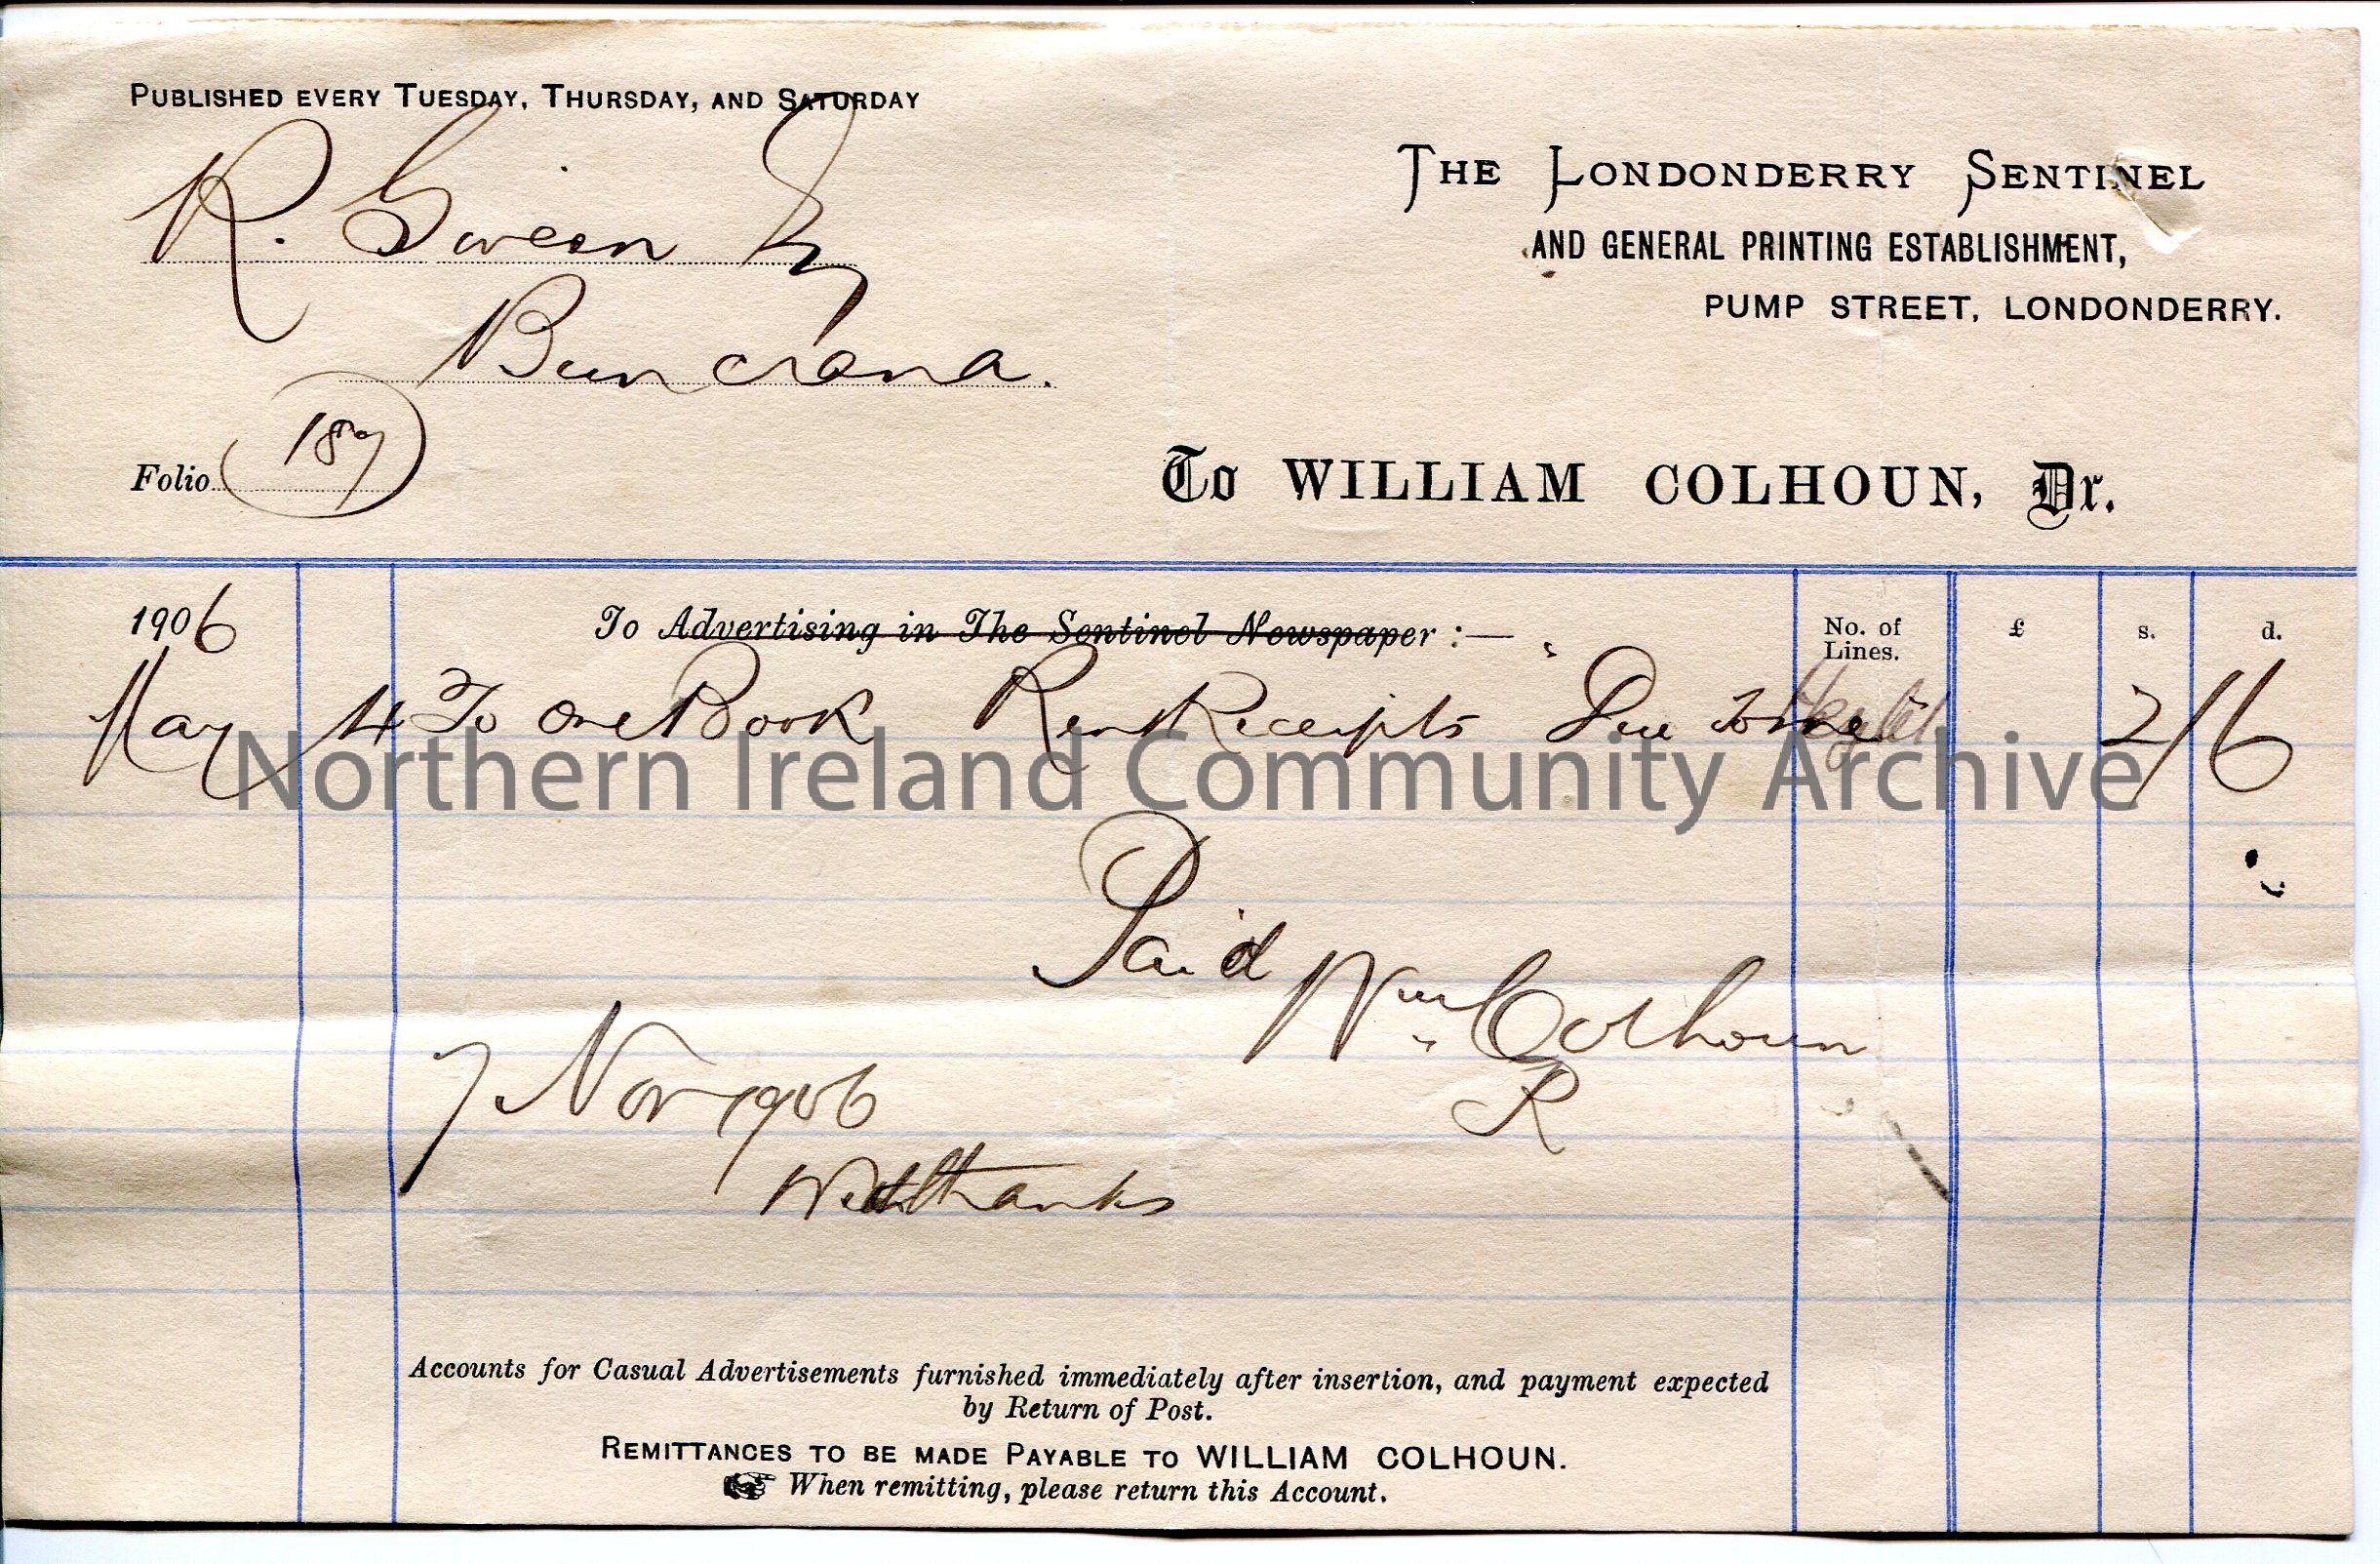 PUBLISHED EVERY TUESDAY, THURSDAY, AND SATURDAY
R. Sween
Buncrana.
THE LONDONDERRY SENTINEL
AND GENERAL PRINTING ESTABLISHMENT,
PUMP STREET, LONDONDERRY.
Folio 187
To WILLIAM COLHOUN, Dr.
1906 To Advertising in The Sentinel Newspaper :— No. of Lines. £ s. d.
May 4 To One Book Rent Receipts Due 2/6
Northern Ireland Community Archive
Paid
Wm Colhoun
R
7 Nov 1906
With thanks
Accounts for Casual Advertisements furnished immediately after insertion, and payment expected
by Return of Post.
REMITTANCES TO BE MADE PAYABLE TO WILLIAM COLHOUN.
When remitting, please return this Account.